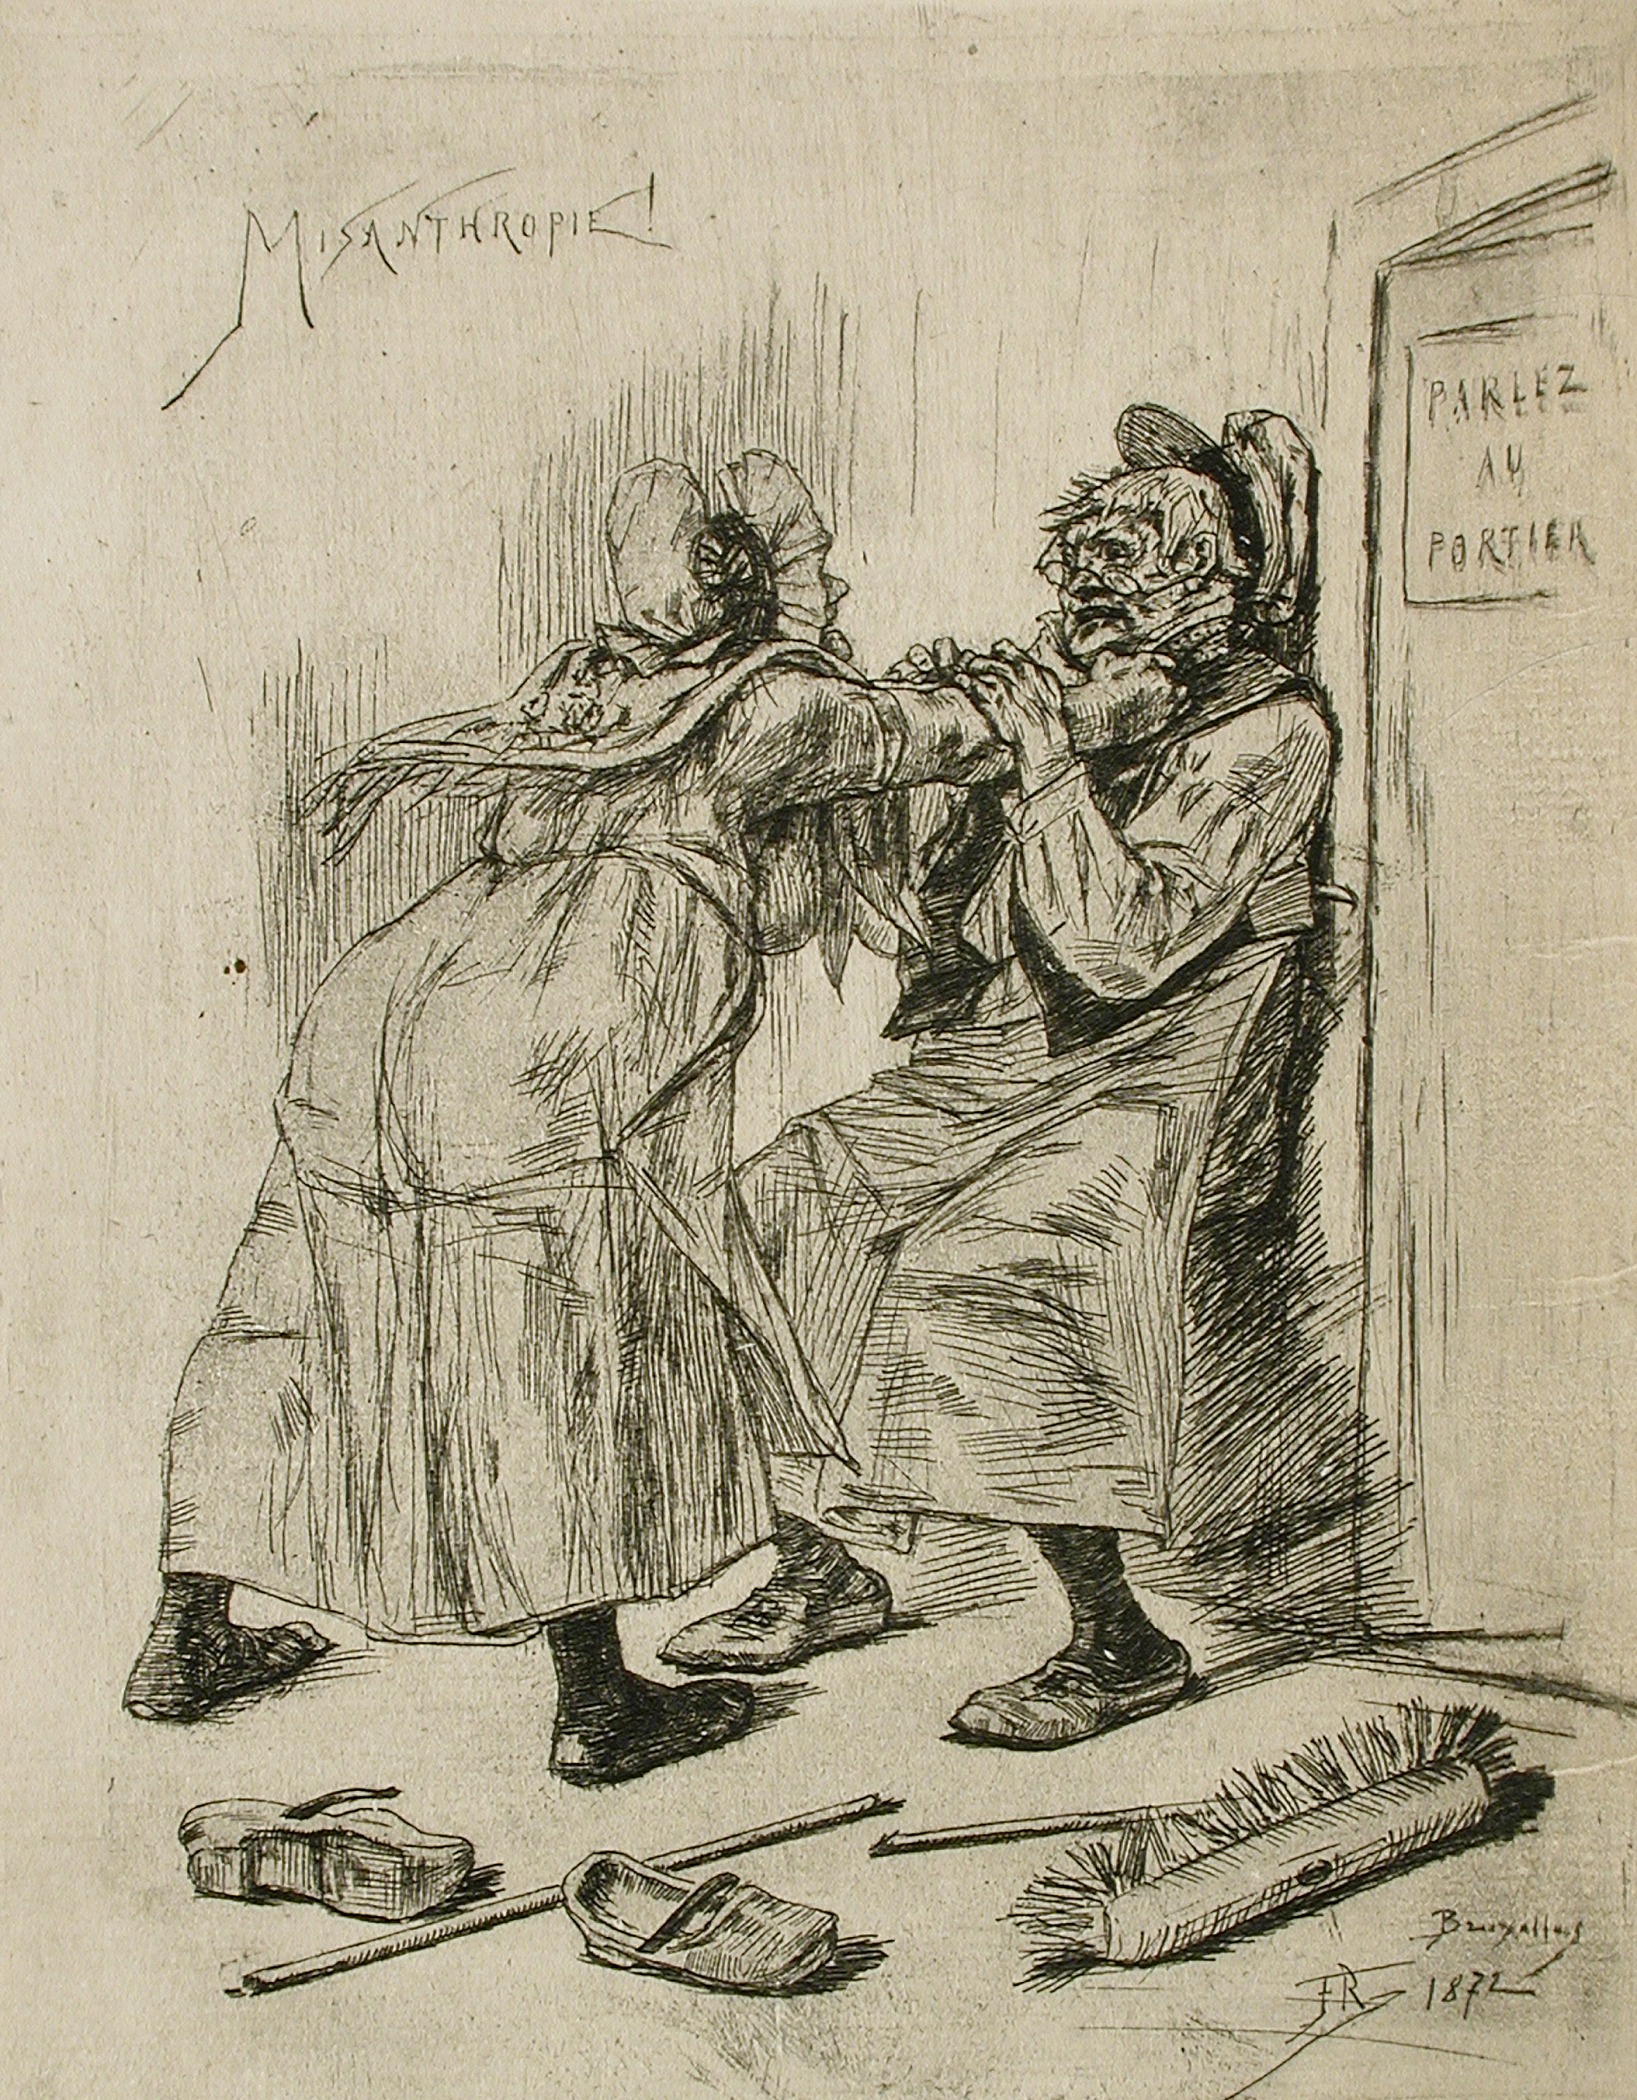 MISANTHROPIE!
PARLEZ
AU
PORTIER
Bruxelles
FR 1872